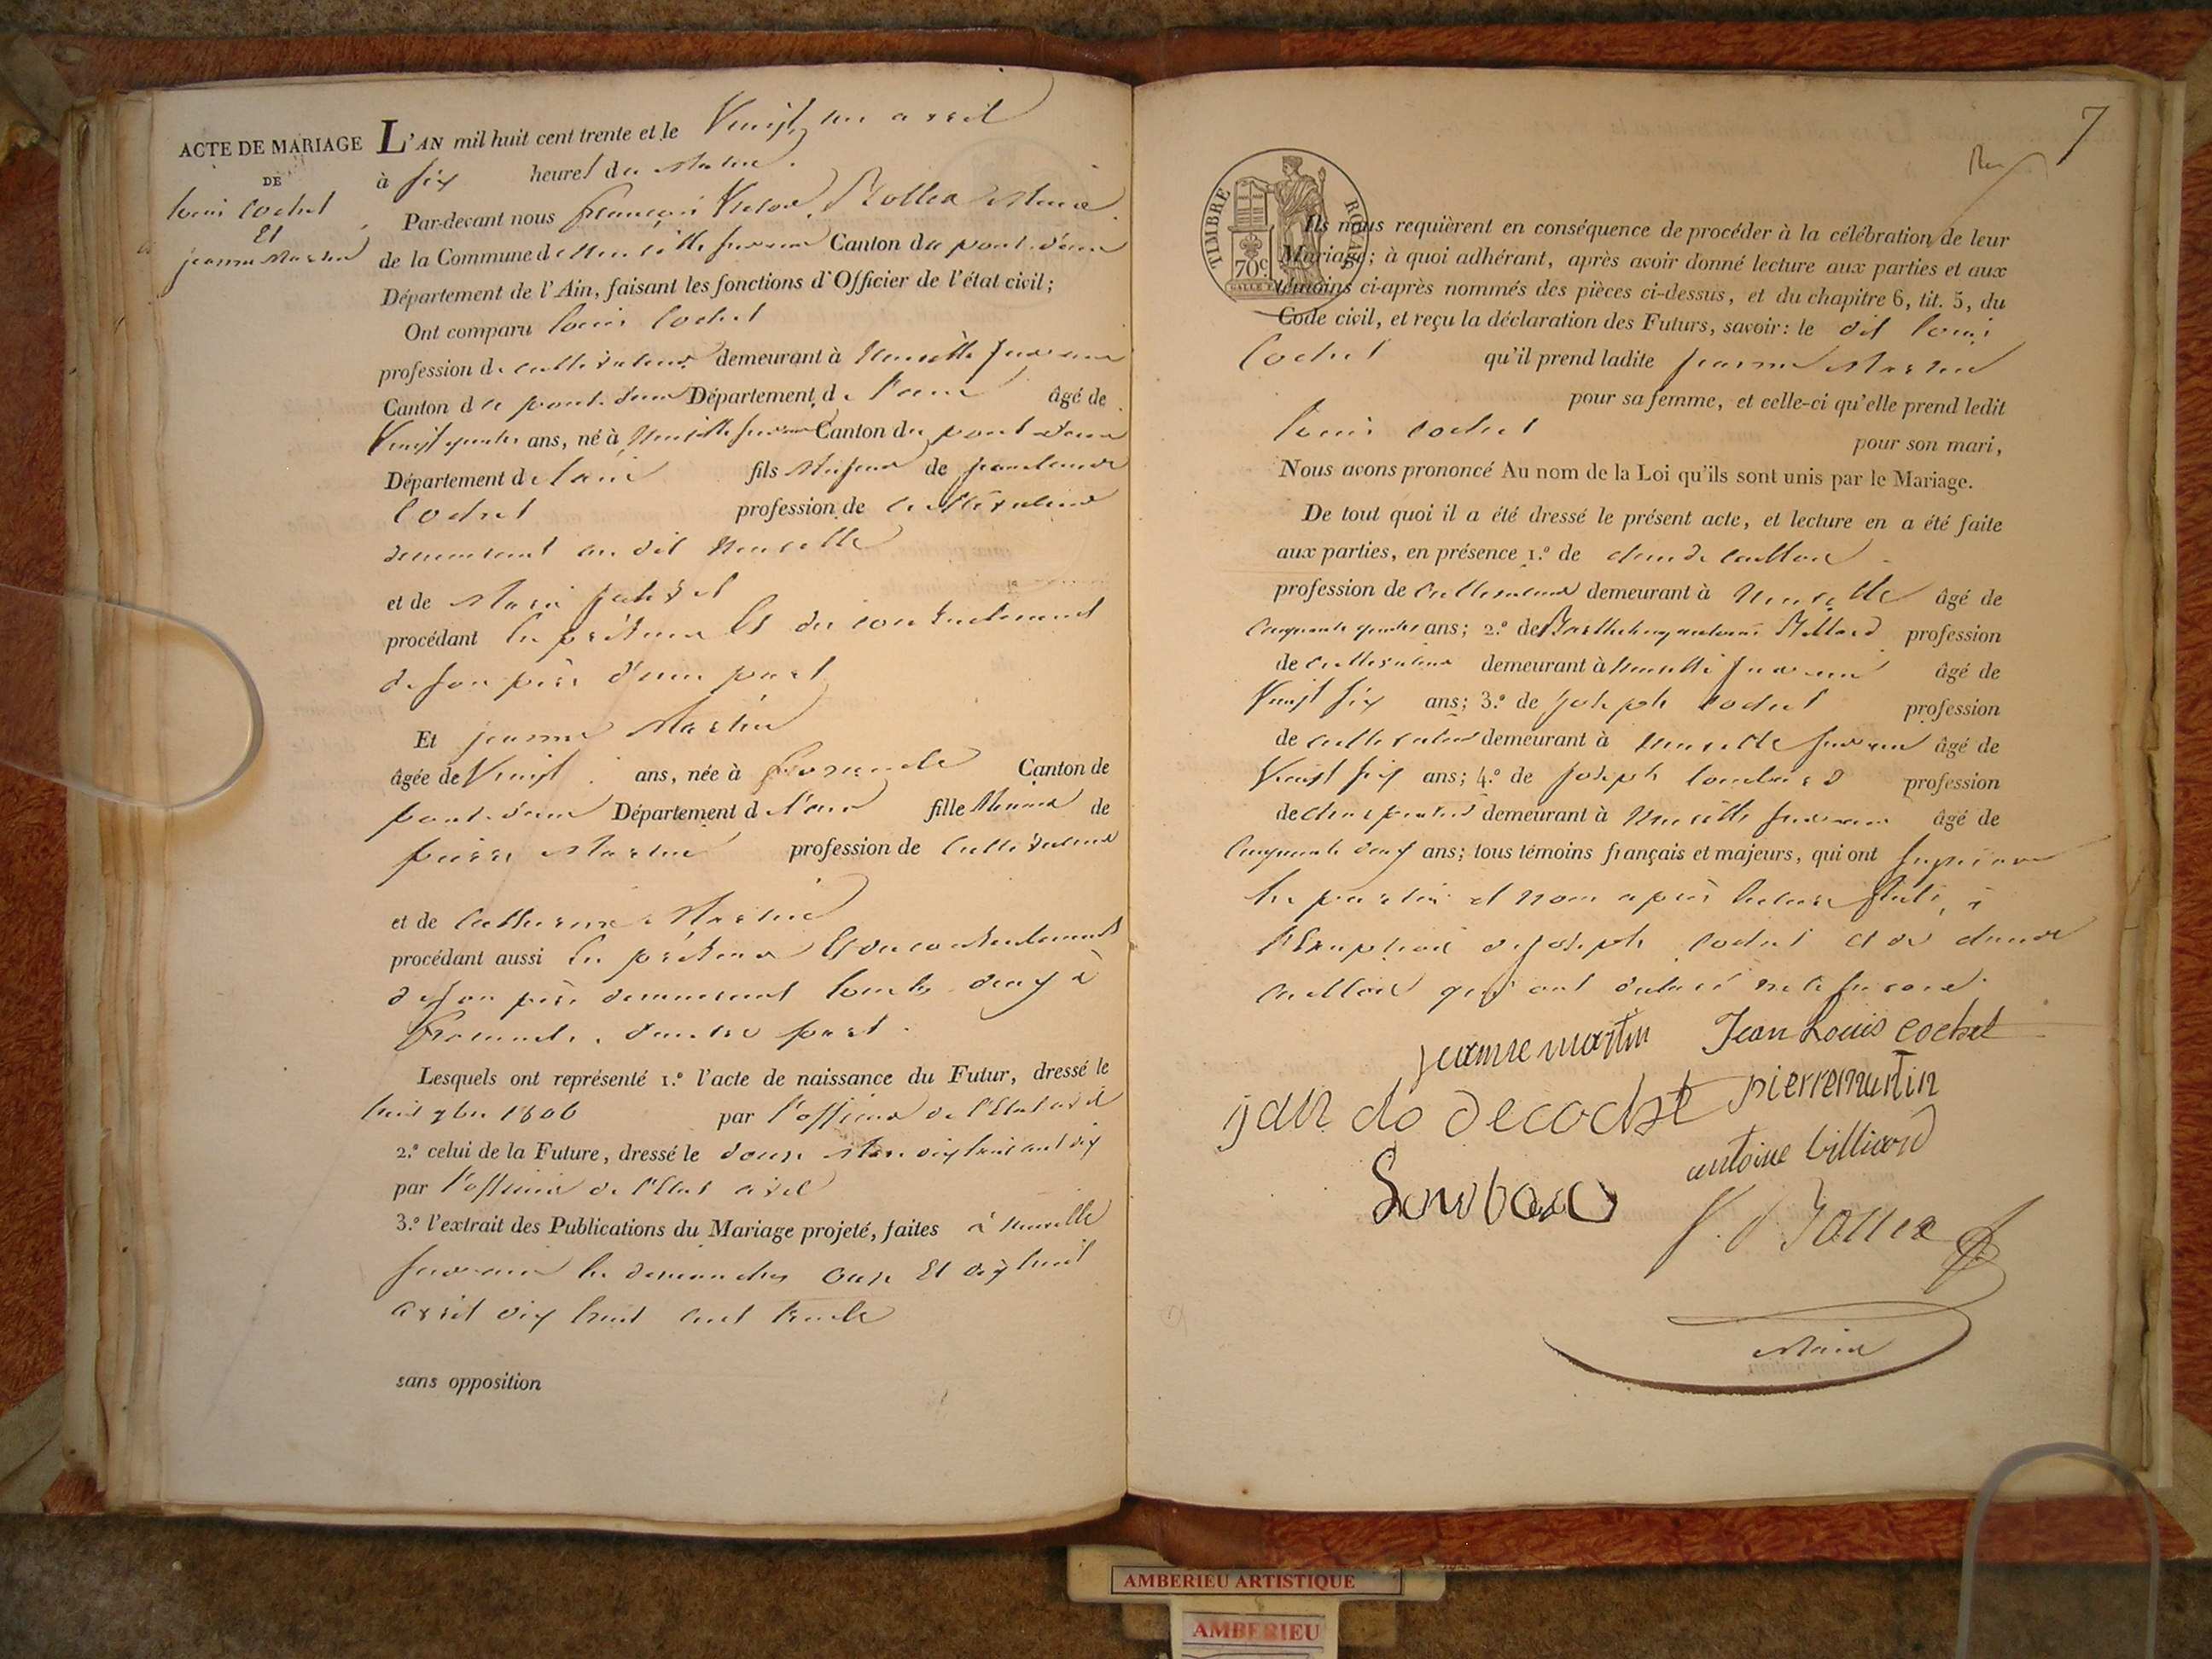 ACTE DE MARIAGE
DE
louis Cochet
Et
jeanne Martin
L'AN mil huit cent trente et le Vingt un avril
à six heures du Matin.
Par-devant nous françois Victor Maire
de la Commune de Neuville sur ain Canton du pont-d'ain
Département de l'Ain, faisant les fonctions d'Officier de l'état civil;
Ont comparu louis Cochet
profession de cultivateur demeurant à Neuville sur ain
Canton du pont-d'ain Département de l'ain âgé de
Vingt quatre ans, né à Neuville sur ain Canton du pont-d'ain
Département de l'ain fils Majeur de
Cochet profession de Cultivateur
demeurant au dit Neuville
et de Marie
procédant En présence Et du consentement
de son père d'une part
Et jeanne Martin
âgée de Vingt ans, née à Canton de
pont-d'ain Département de l'ain fille Mineure de
pierre Martin profession de Cultivateur
et de Catherine Martin
procédant aussi En présence Et du consentement
de son père demeurant tous les deux à
d'autre part.
Lesquels ont représenté 1.º l'acte de naissance du Futur, dressé le
huit 9bre 1806 par l'officier de l'Etat civil
2.º celui de la Future, dressé le douze Mars dix huit cent dix
par l'officier de l'Etat civil
3.º l'extrait des Publications du Mariage projeté, faites à Neuville
sur ain les dimanches onze Et dix huit
avril dix huit cent trente
sans opposition
7
TIMBRE ROYAL
70c
Ils nous requièrent en conséquence de procéder à la célébration de leur
Mariage; à quoi adhérant, après avoir donné lecture aux parties et aux
témoins ci-après nommés des pièces ci-dessus, et du chapitre 6, tit. 5, du
Code civil, et reçu la déclaration des Futurs, savoir: le dit louis
Cochet qu'il prend ladite jeanne Martin
pour sa femme, et celle-ci qu'elle prend ledit
louis Cochet pour son mari,
Nous avons prononcé Au nom de la Loi qu'ils sont unis par le Mariage.
De tout quoi il a été dressé le présent acte, et lecture en a été faite
aux parties, en présence 1.º de claude
profession de Cultivateur demeurant à Neuville âgé de
Cinquante quatre ans; 2.º de Barthelemy antoine profession
de Cultivateur demeurant à Neuville sur ain âgé de
Vingt six ans; 3.º de joseph Cochet profession
de cultivateur demeurant à Neuville sur ain âgé de
Vingt six ans; 4.º de joseph profession
de charpentier demeurant à Neuville sur ain âgé de
Cinquante deux ans; tous témoins français et majeurs, qui ont signé avec
les parties et nous après lecture faite, à
l'Exception de joseph Cochet et de claude
qui ont déclaré ne le savoir.
jeanne martin Jean Louis cochet
pierre martin
antoine billiard
Maire
AMBERIEU ARTISTIQUE
AMBERIEU